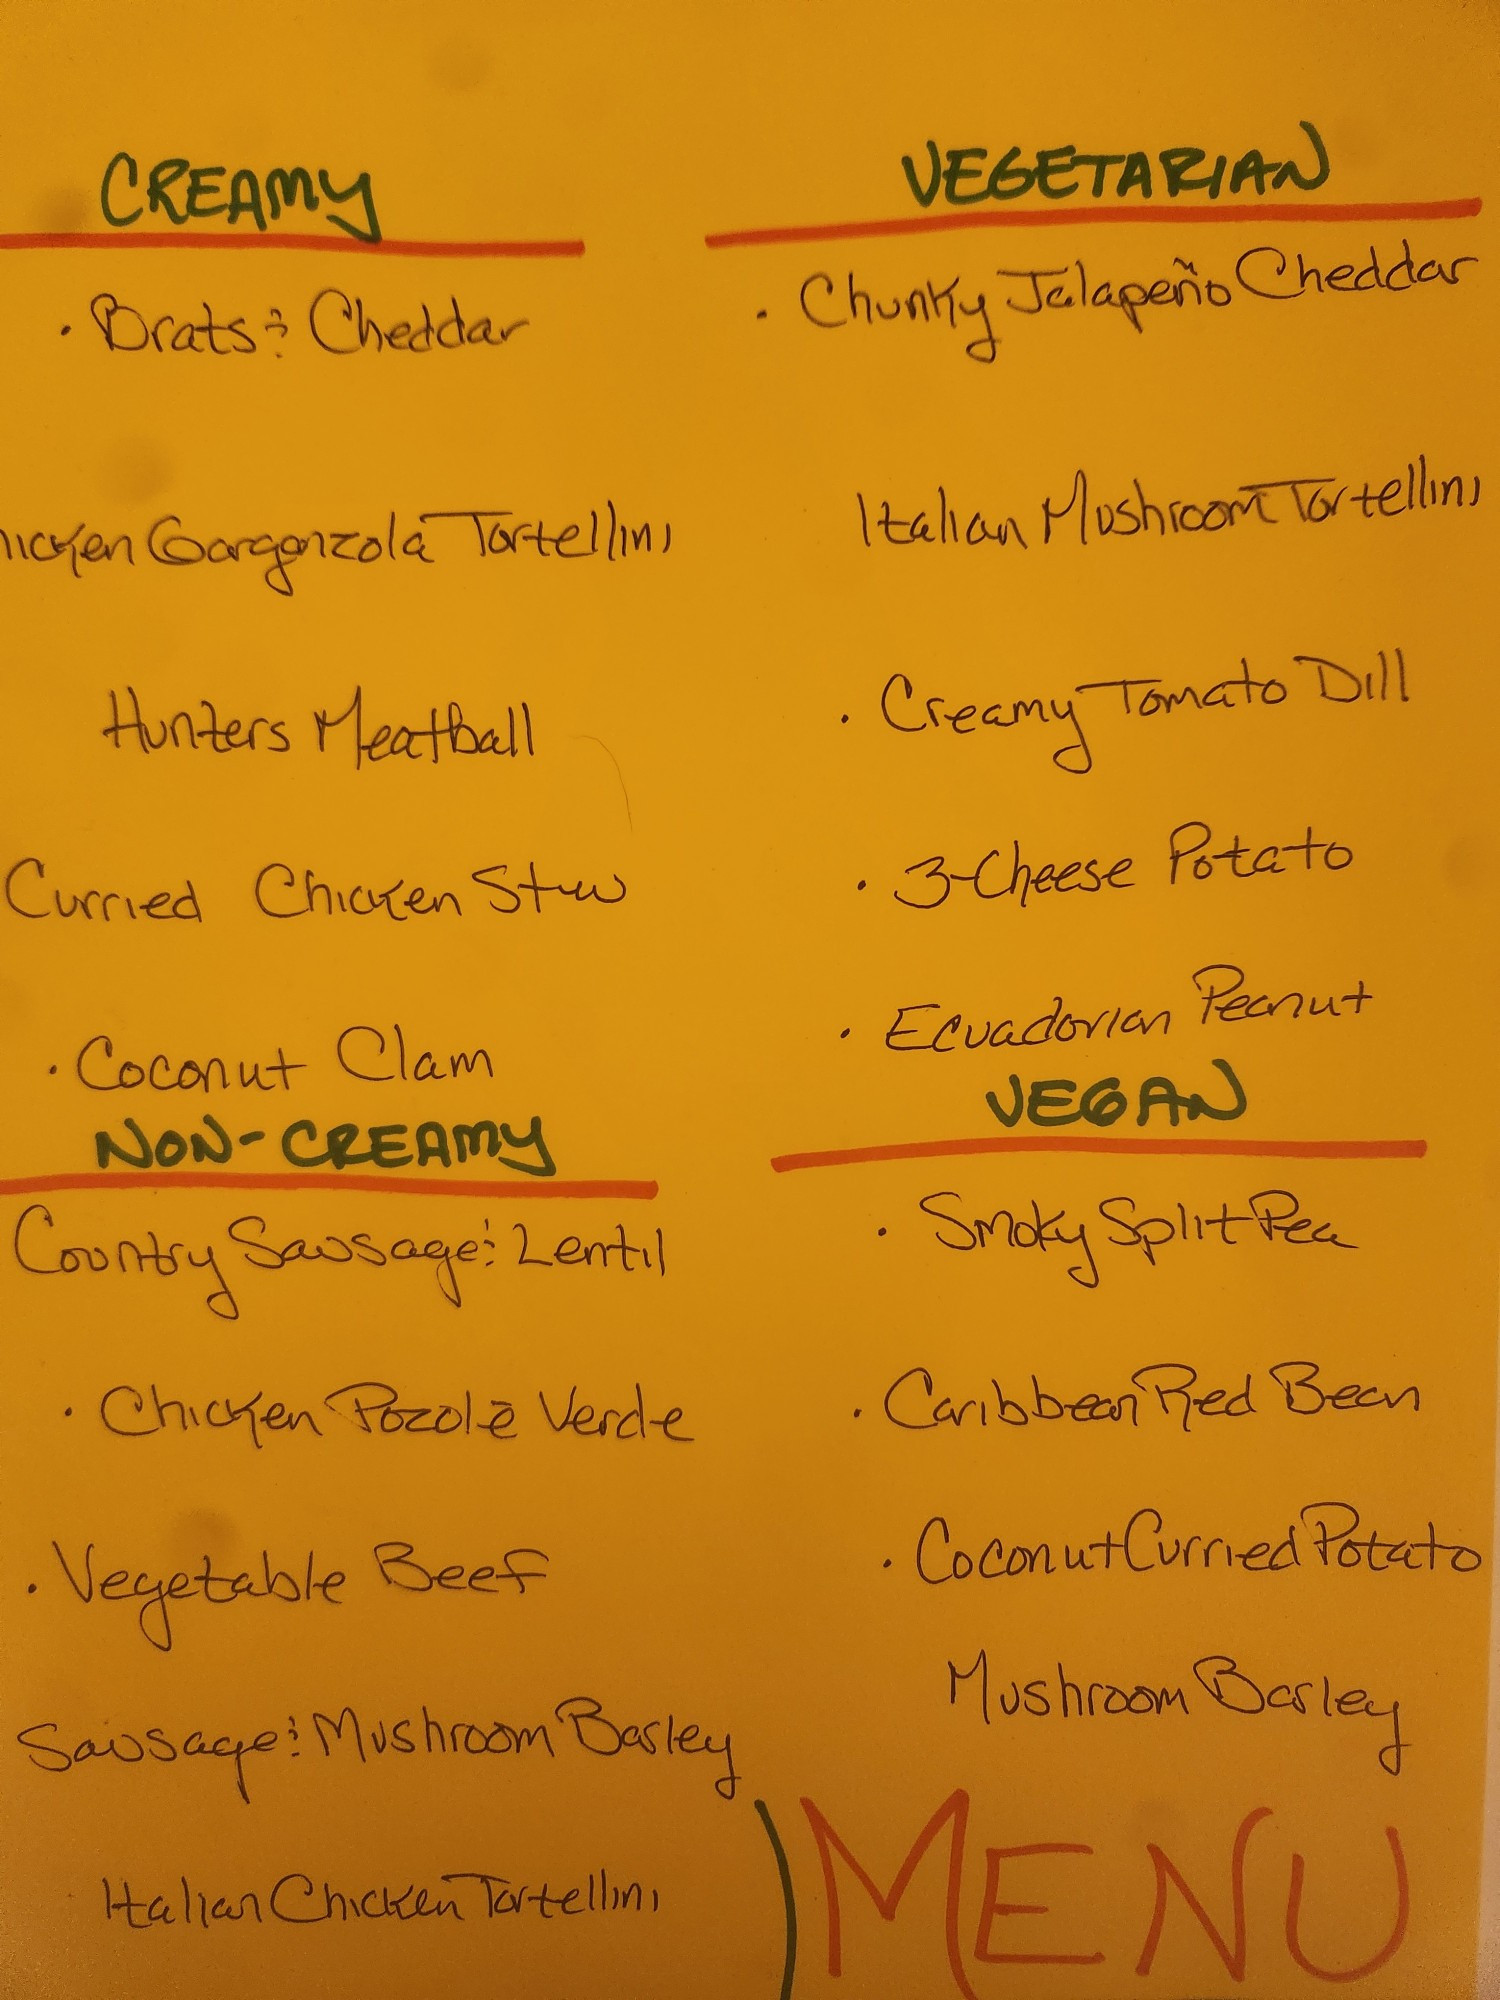 CREAMY
· Brats & Cheddar
hicken Gorgonzola Tortellini
Hunters Meatball
Curried Chicken Stew
· Coconut Clam
NON-CREAMY
Country Sausage & Lentil
· Chicken Pozole Verde
· Vegetable Beef
Sausage & Mushroom Barley
Italian Chicken Tortellini
VEGETARIAN
· Chunky Jalapeño Cheddar
Italian Mushroom Tortellini
· Creamy Tomato Dill
· 3-Cheese Potato
· Ecuadorian Peanut
VEGAN
· Smoky Split Pea
· Caribbean Red Bean
· Coconut Curried Potato
Mushroom Barley
MENU